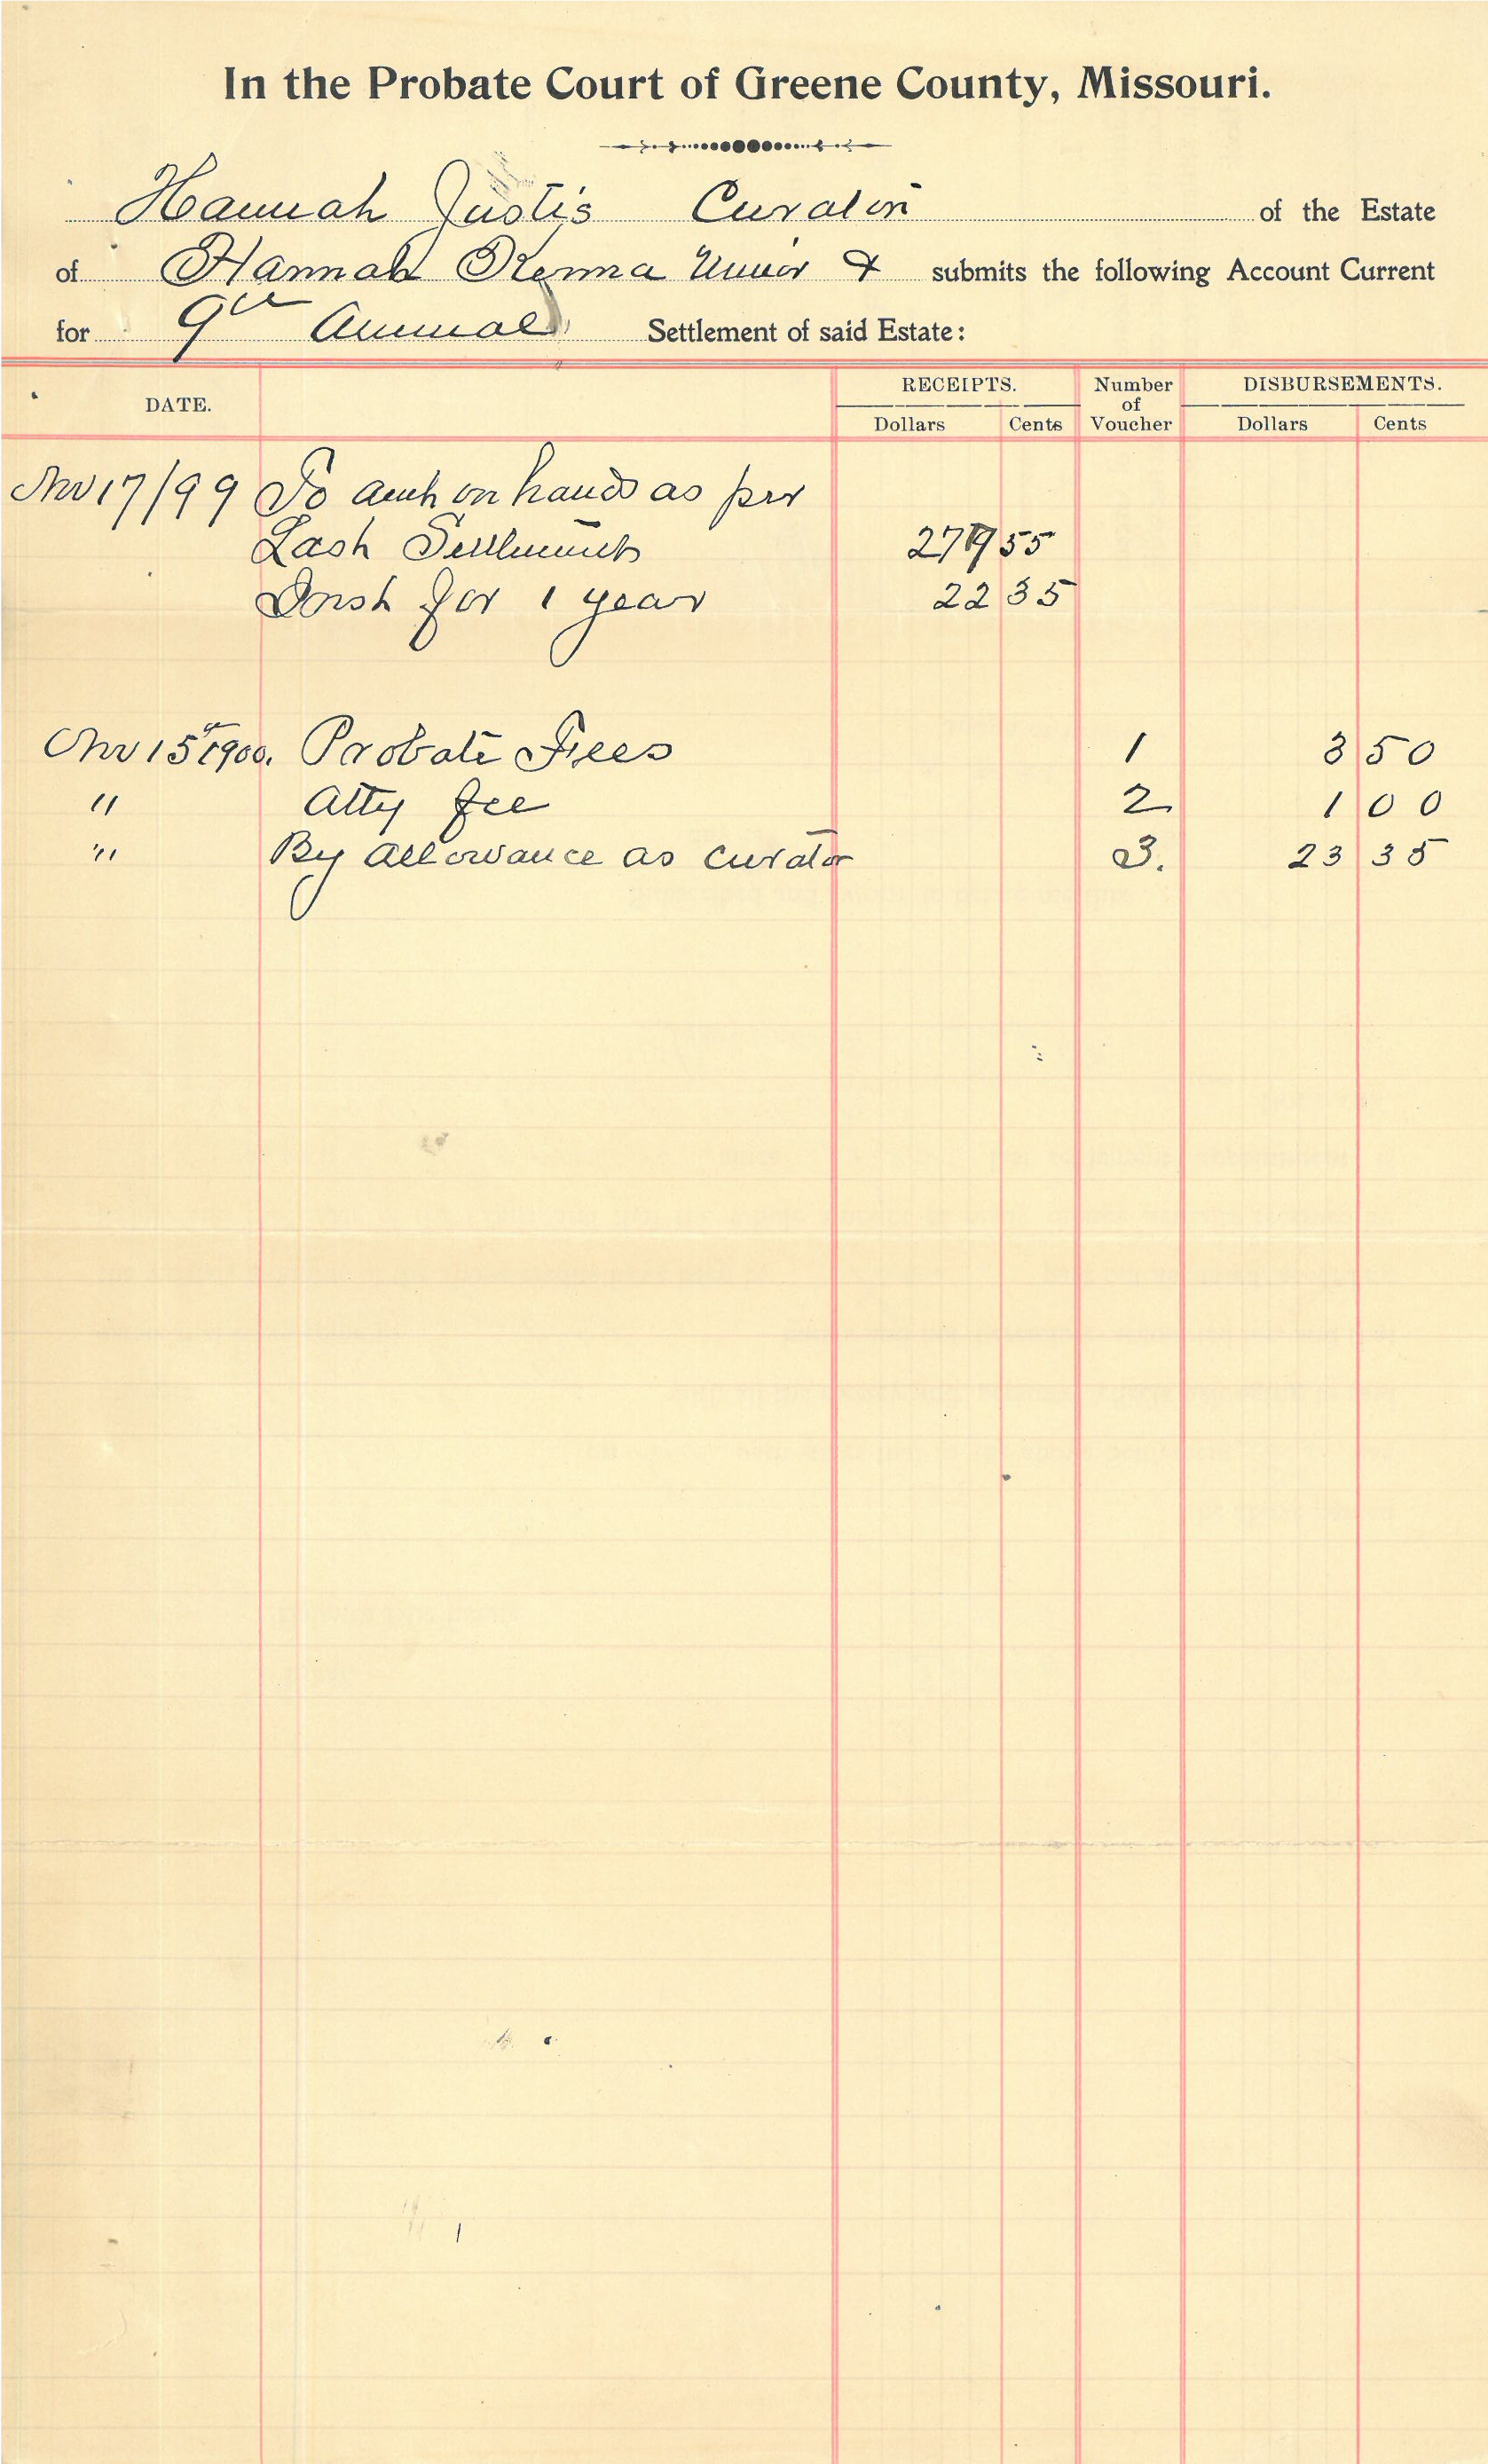 In the Probate Court of Greene County, Missouri.
Hannah Justis Curator of the Estate
of Hannah Kenna Minor & submits the following Account Current
for 9th Annual Settlement of said Estate:
DATE. RECEIPTS. Number of Voucher DISBURSEMENTS.
Dollars Cents Dollars Cents
Nov 17/99 To amt on hand as per
Last Settlement 279 55
Inst for 1 year 22 35
Nov 15th 1900. Probate Fees 1 3 50
" Atty fee 2 1 00
" By allowance as curator 3. 23 35